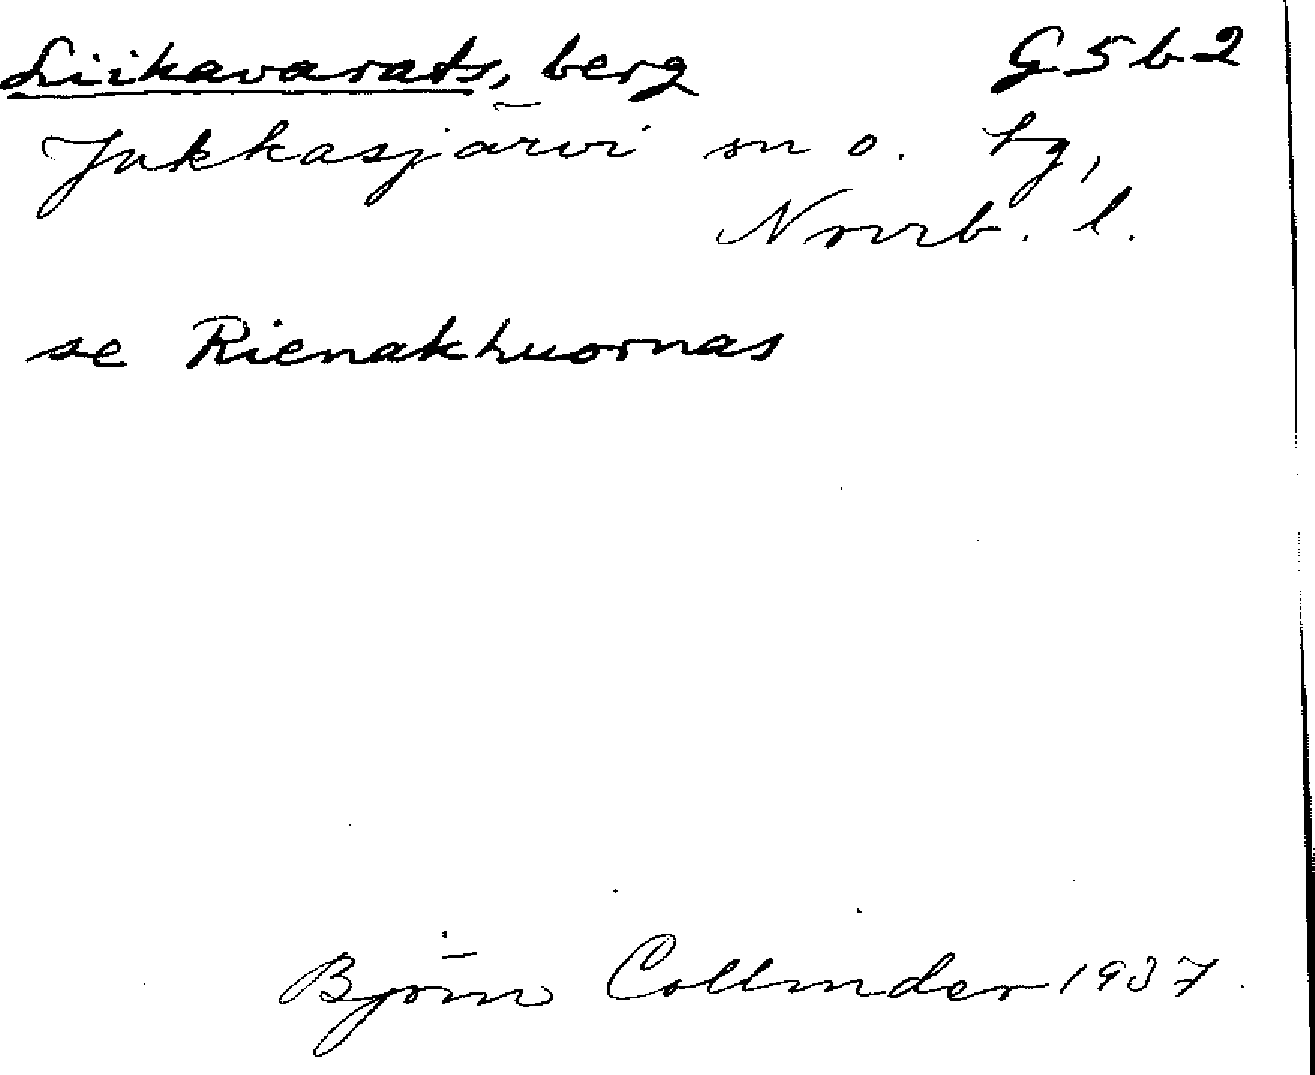 Liikavarats, berg G5b2
Jukkasjärvi sn o. tg,
Norrb. l.
se Rienakkuornas
Björn Collinder 1937.